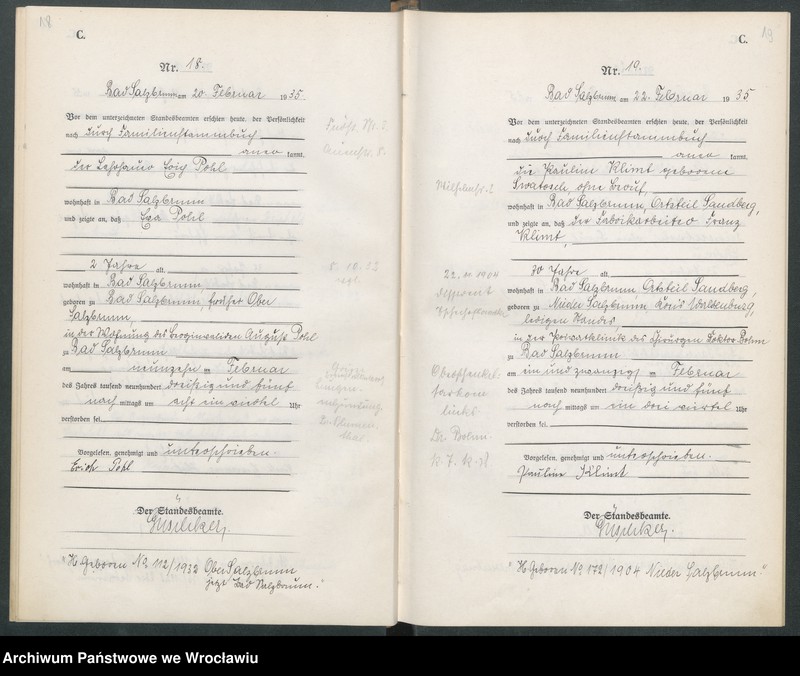 18
C.
Nr. 18.
Bad Salzbrunn am 20. Februar 1935.
Vor dem unterzeichneten Standesbeamten erschien heute, der Persönlichkeit
nach durch Familienstammbuch
kannt,
der Erich Pohl
wohnhaft in Bad Salzbrunn
und zeigte an, daß Eva Pohl
2 Jahre alt
wohnhaft in Bad Salzbrunn,
geboren zu Bad Salzbrunn, früher Ober
Salzbrunn,
in der Wohnung des Berginvaliden August Pohl
zu Bad Salzbrunn
am neunzehn ten Februar
des Jahres tausend neunhundert dreißig und fünf
nach mittags um acht ein viertel Uhr
verstorben sei.
Vorgelesen, genehmigt und unterschrieben.
Erich Pohl
Der Standesbeamte.
"H Geboren No 112/1932 Ober Salzbrunn
jetzt Bad Salzbrunn."
8.10.32
19
C.
Nr. 19.
Bad Salzbrunn am 22. Februar 1935
Vor dem unterzeichneten Standesbeamten erschien heute, der Persönlichkeit
nach durch Familienstammbuch
kannt,
die Pauline Klimt geborene
ohne Beruf,
wohnhaft in Bad Salzbrunn, Ortsteil Sandberg,
und zeigte an, daß der Fabrikarbeiter Franz
Klimt,
30 Jahre alt
wohnhaft in Bad Salzbrunn Ortsteil Sandberg,
geboren zu Nieder Salzbrunn, Kreis Waldenburg,
ledigen Standes,
in der Privatklinik des Chirurgen Doktor Bohm
zu Bad Salzbrunn
am ein und zwanzigsten Februar
des Jahres tausend neunhundert dreißig und fünf
nach mittags um ein drei viertel Uhr
verstorben sei.
Vorgelesen, genehmigt und unterschrieben.
Pauline Klimt
Der Standesbeamte.
"H Geboren No 172/1904 Nieder Salzbrunn."
Oberschenkel
sarkom
links.
Archiwum Państwowe we Wrocławiu